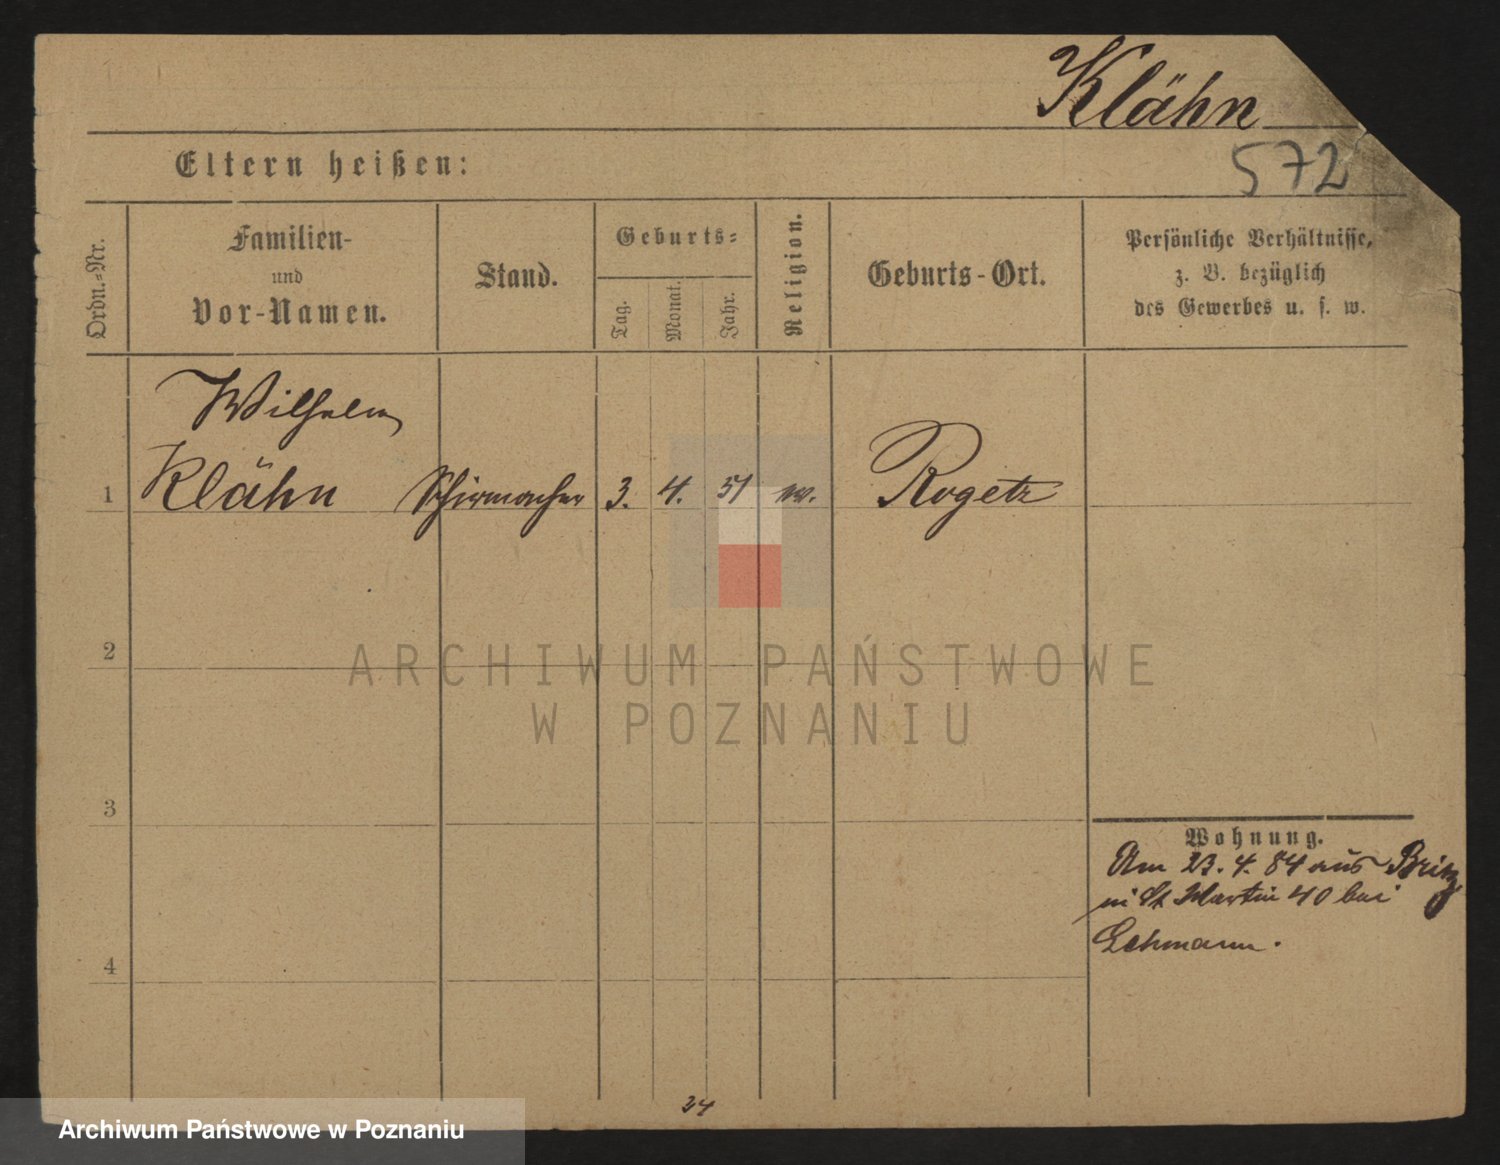 Klähn
572
Eltern heißen:
Ordn.-Nr.
Familien-
und
Vor-Namen.
Stand.
Geburts-
Tag.
Monat.
Jahr.
Religion.
Geburts-Ort.
Persönliche Verhältnisse,
z. B. bezüglich
des Gewerbes u. s. w.
Wilhelm
1 Klähn Schirmacher 3. 4. 51 Rogetz
2
ARCHIWUM PAŃSTWOWE
W POZNANIU
3
Wohnung.
Am 23. 4. 84 aus Britz
St Martin 40 bei
Lehmann.
4
24
Archiwum Państwowe w Poznaniu